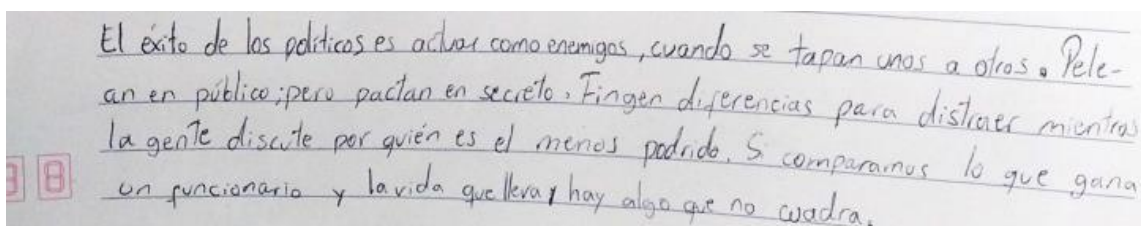 El éxito de los políticos es actuar como enemigos, cuando se tapan unos a otros. Pele-
an en público; pero pactan en secreto. Fingen diferencias para distraer mientras
la gente discute por quién es el menos podrido. Si comparamos lo que gana
un funcionario y la vida que lleva, hay algo que no cuadra.